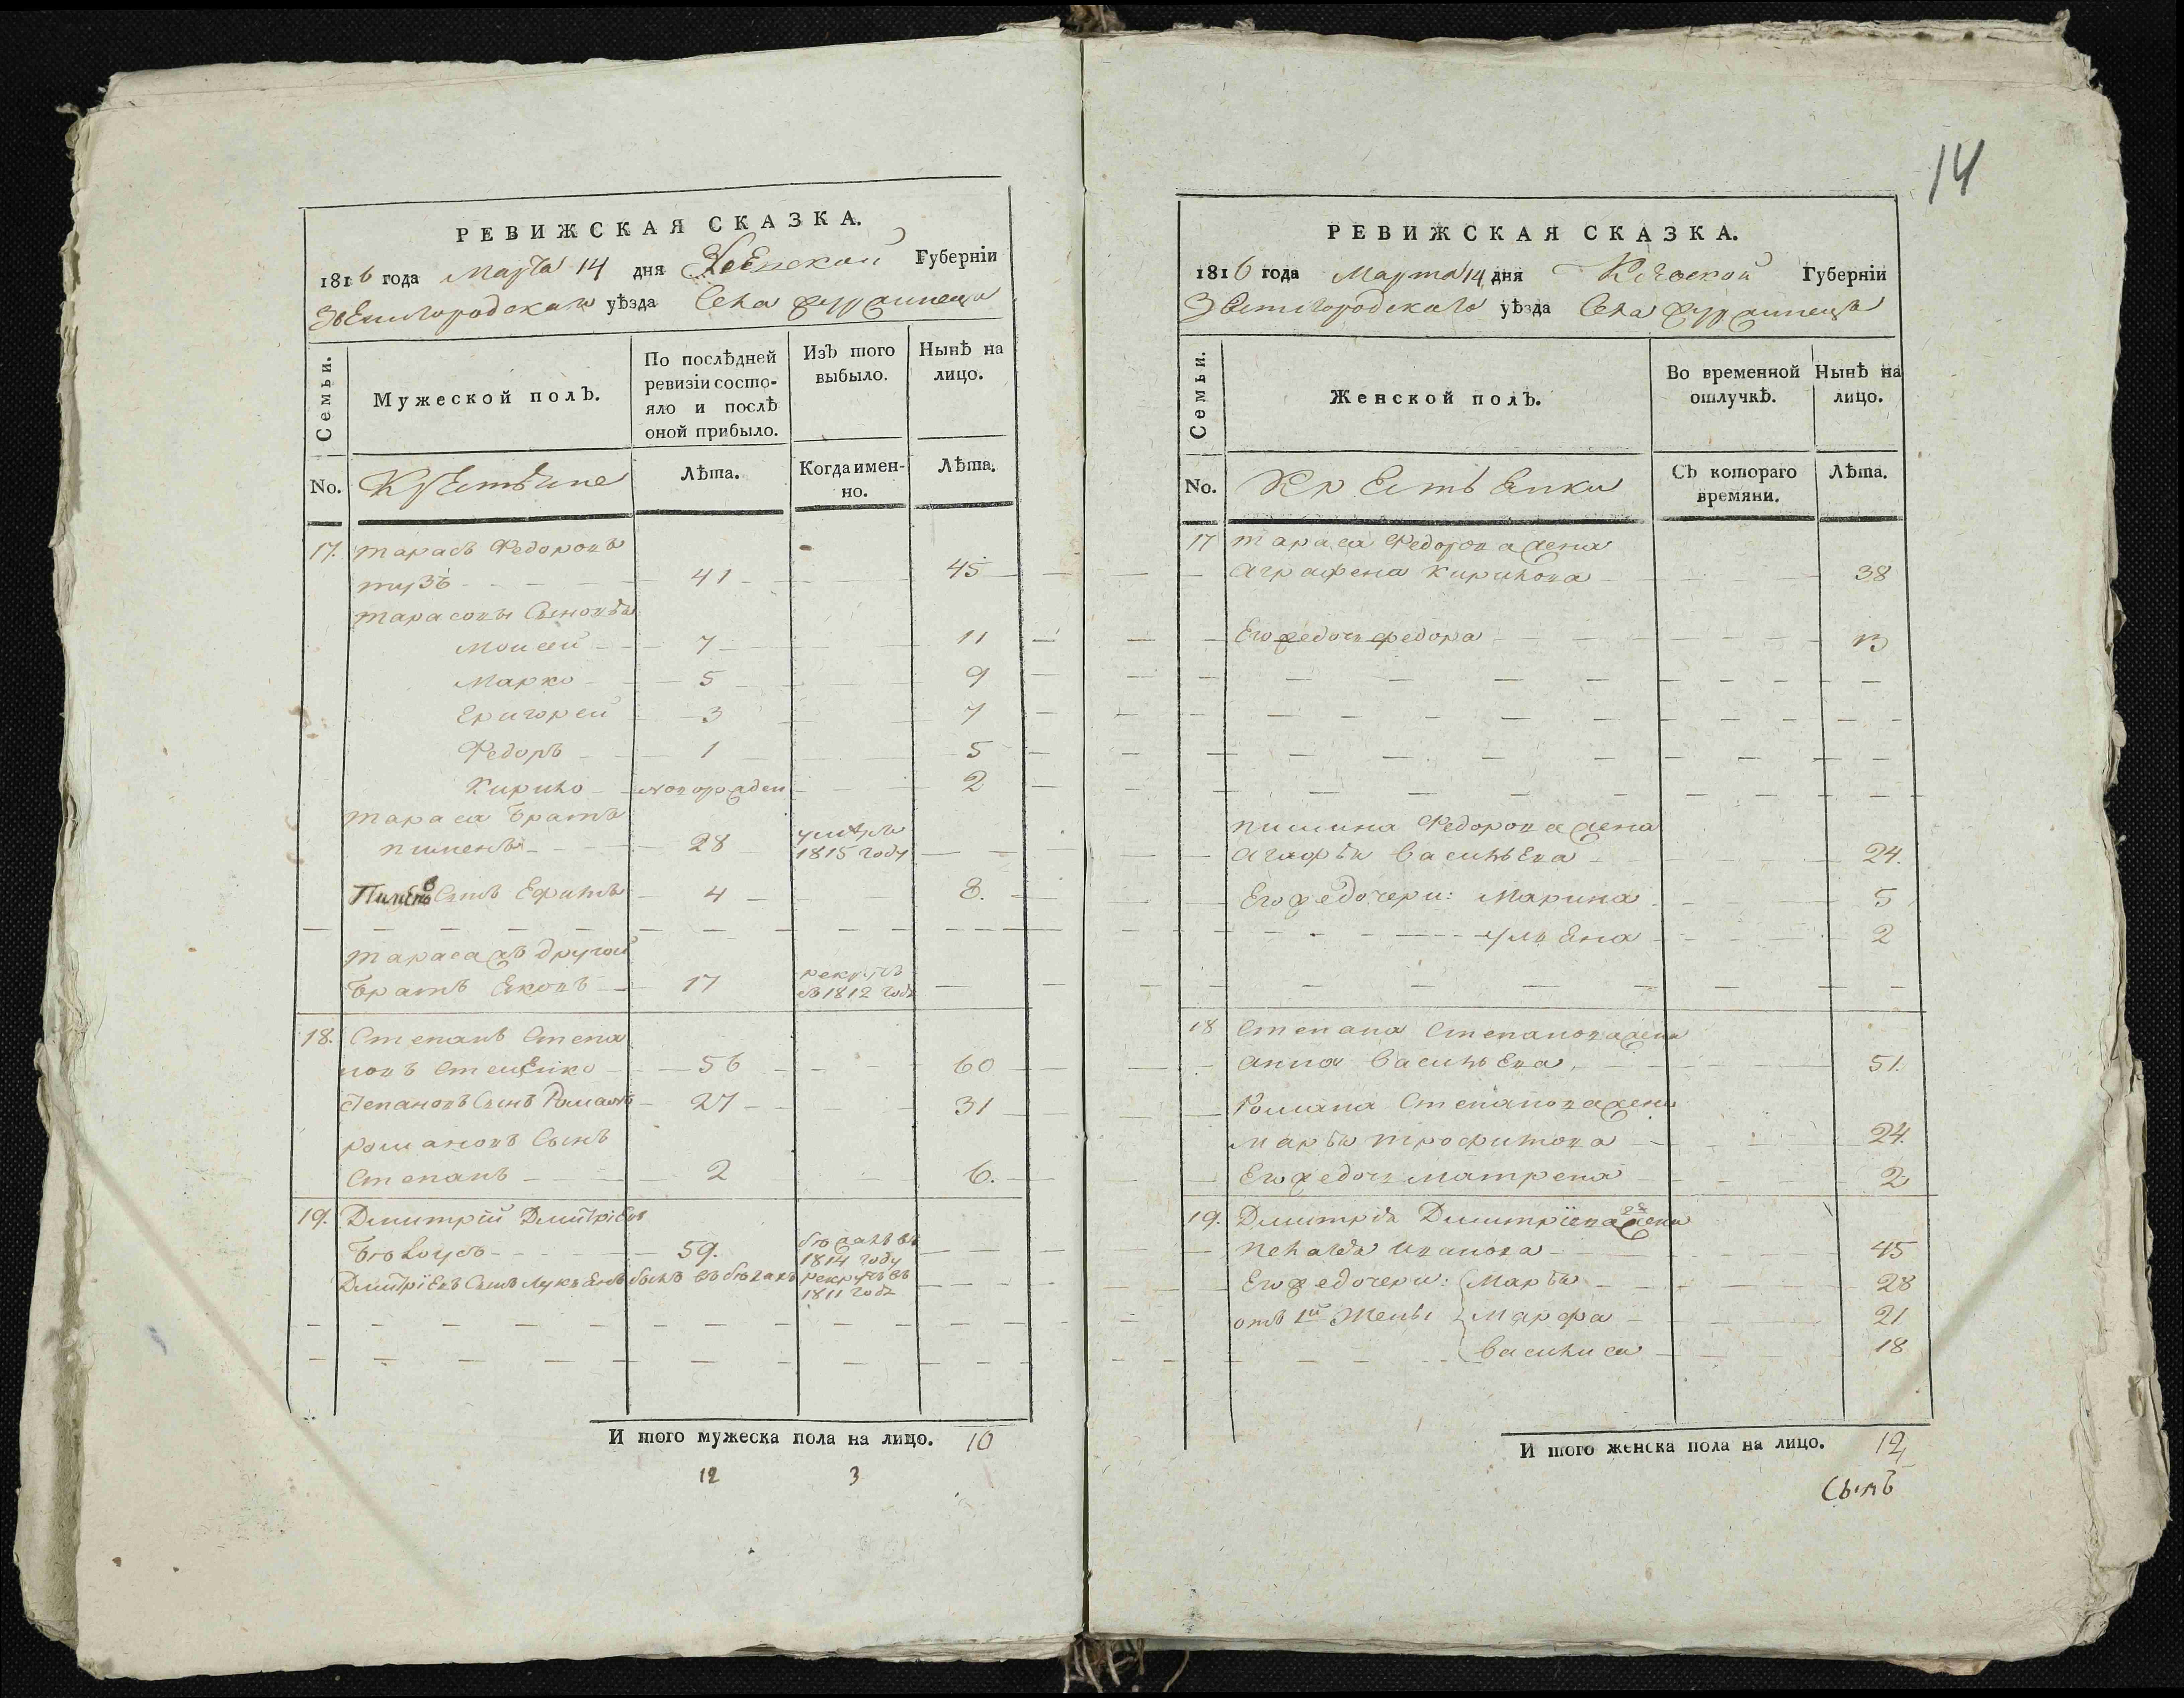 14
РЕВИЖСКАЯ СКАЗКА.
1816 года Марта 14 дня Кіевской Губерніи
Звенигородскаго уѣзда Села
Семьи.
Мужеской полъ.
По послѣдней ревизіи состояло и послѣ оной прибыло.
Изъ того выбыло.
Нынѣ на лицо.
No.
Крестьяне
Лѣта.
Когда именно.
Лѣта.
17. Тарасъ Федоровъ
тузъ 41 45
Тарасовы Сыновья
Моисей 7 11
Марко 5 9
Григорей 3 7
Федоръ 1 5
Кирило новорожден 2
Тараса братъ умѣръ
пименъ 28 1815 году
Пименовъ Сынъ Ефимъ 4 8.
Тараса жъ другой
братъ Яковъ 17 рекрутъ въ 1812 годѣ
18. Степанъ Степа
новъ 56 60
Степановъ Сынъ Романъ 27 31
романовъ Сынъ
Степанъ 2 6.
19. Дмитрій Дмитріевъ
Бѣлоусъ 59. бѣжалъ въ 1814 году
Дмитріевъ Сынъ Лукьянъ былъ въ бѣгахъ рекрутъ въ 1811 годѣ
И того мужеска пола на лицо. 10
12 3
РЕВИЖСКАЯ СКАЗКА.
1816 года Марта 14 дня Кіевской Губерніи
Звенигородскаго уѣзда Села
Семьи.
Женской полъ.
Во временной отлучкѣ.
Нынѣ на лицо.
No.
Крестьянки
Съ котораго времяни.
Лѣта.
17 Тараса Федорова жена
Аграфена Кирилова 38
Его же дочь федора 13
пимина Федорова жена
Агафья Васильева 24.
Его же дочери: Марина 5
Ульяна 2
18 Степана Степанова жена
Анна Васильева 51.
Романа Степанова жена
Марья трофимова 24.
Его же дочь Матрена 2
19. Дмитрія Дмитріева 2я жена
Пелагея Иванова 45
Его же дочери: Марья 28
отъ 1й Жены Марфа 21
Василиса 18
И того женска пола на лицо. 12
Сынъ